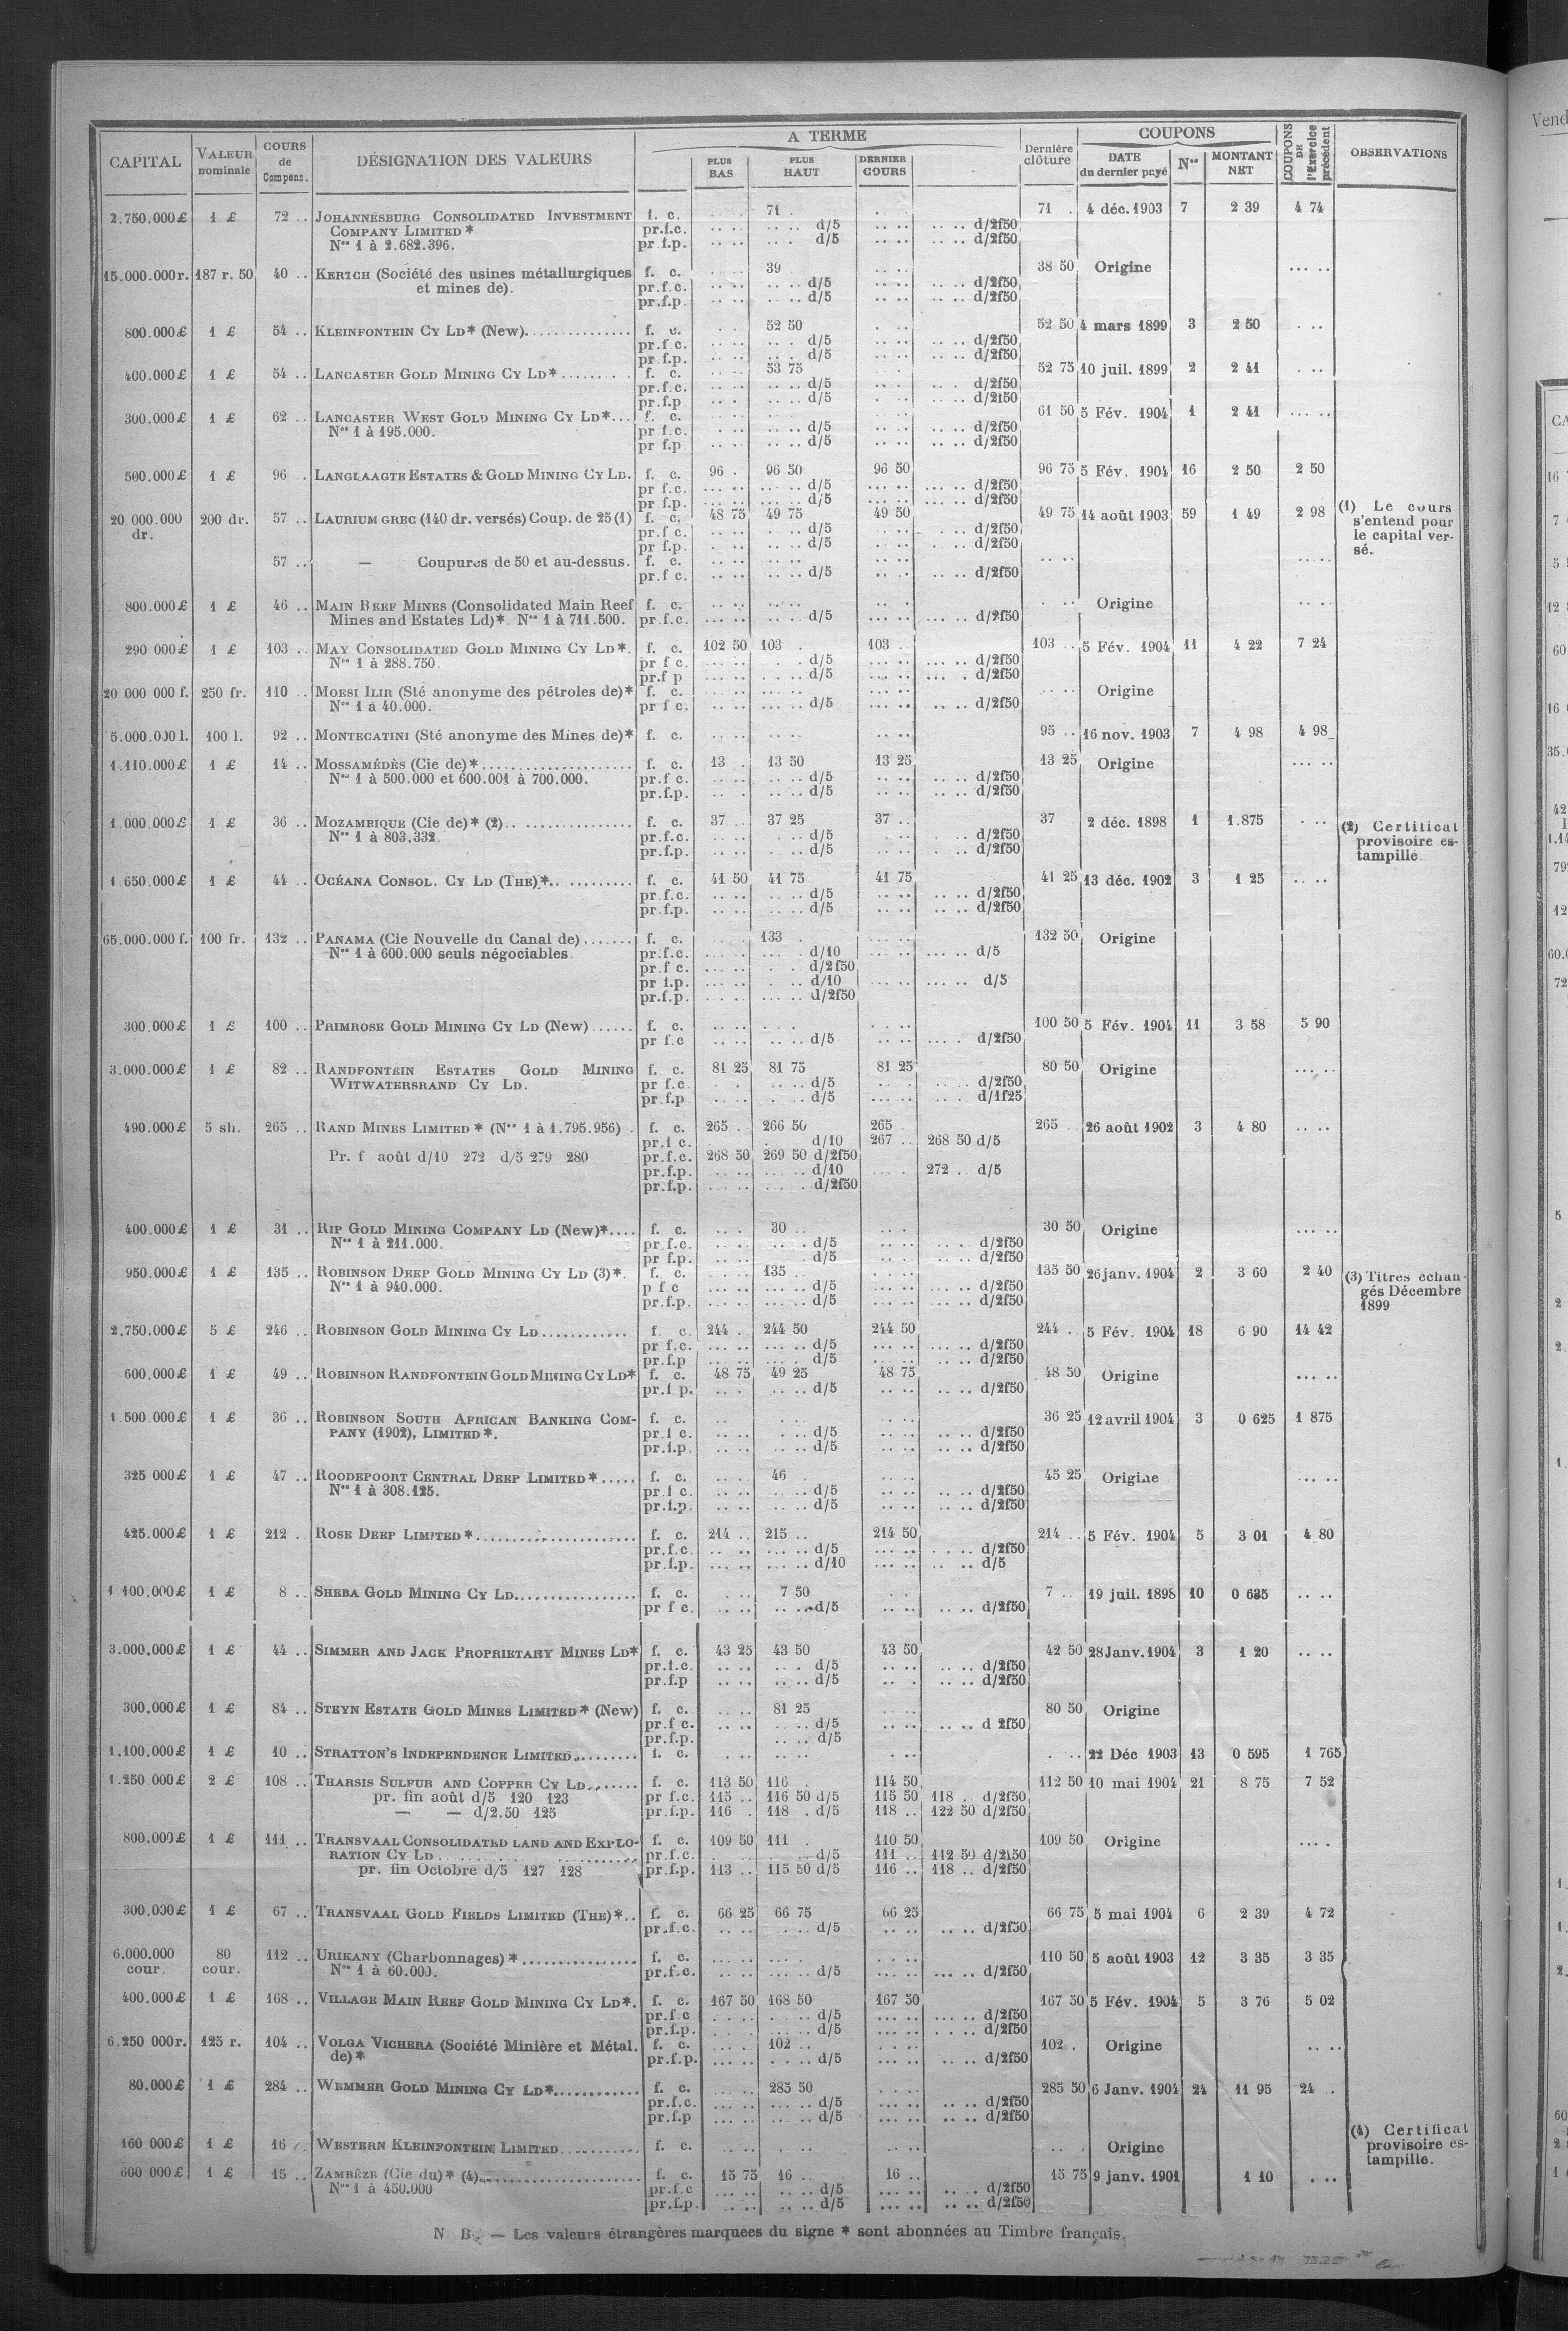 CAPITAL VALEUR nominale COURS de Compens. DÉSIGNATION DES VALEURS A TERME PLUS BAS PLUS HAUT DERNIER COURS Dernière clôture COUPONS DATE du dernier payé Nos MONTANT NET COUPONS DE l'Exercice précédent OBSERVATIONS
2.750.000£ 1 £ 72 .. JOHANNESBURG CONSOLIDATED INVESTMENT f. c. 71 . 71 . 4 déc. 1903 7 2 39 4 74
COMPANY LIMITED * pr.f.c. d/5 d/2f50
Nos 1 à 2.682.396. pr f.p. d/5 d/2f50
15.000.000r. 187 r. 50 40 .. KERTCH (Société des usines métallurgiques f. c. 39 38 50 Origine
et mines de). pr.f.c. d/5 d/2f50
pr.f.p. d/5 d/2f50
800.000£ 1 £ 54 .. KLEINFONTEIN CY LD* (New) f. c. 52 50 52 50 4 mars 1899 3 2 50
pr.f c. d/5 d/2f50
pr f.p. d/5 d/2f50
400.000£ 1 £ 54 .. LANCASTER GOLD MINING CY LD* f. c. 53 75 52 75 10 juil. 1899 2 2 41
pr.f.c. d/5 d/2f50
pr.f.p d/5 d/2f50
300.000£ 1 £ 62 .. LANCASTER WEST GOLD MINING CY LD* f. c. 61 50 5 Fév. 1904 1 2 41
Nos 1 à 195.000. pr f.c. d/5 d/2f50
pr f.p d/5 d/2f50
500.000£ 1 £ 96 . LANGLAAGTE ESTATES & GOLD MINING CY LD. f. c. 96 . 96 50 96 50 96 75 5 Fév. 1904 16 2 50 2 50
pr f.c. d/5 d/2f50
pr f.p. d/5 d/2f50
20 000.000 dr. 200 dr. 57 .. LAURIUM GREC (140 dr. versés) Coup. de 25 (1) f. c. 48 75 49 75 49 50 49 75 14 août 1903 59 1 49 2 98 (1) Le cours s'entend pour le capital versé.
pr.f c. d/5 d/2f50
pr f.p. d/5 d/2f50
57 .. — Coupures de 50 et au-dessus. f. c.
pr.f c. d/5 d/2f50
800.000£ 1 £ 46 .. MAIN REEF MINES (Consolidated Main Reef f. c. Origine
Mines and Estates Ld)*. Nos 1 à 711.500. pr.f.c. d/5 d/2f50
290 000£ 1 £ 103 .. MAY CONSOLIDATED GOLD MINING CY LD*. f. c. 102 50 103 . 103 .. 103 .. 5 Fév. 1904 11 4 22 7 24
Nos 1 à 288.750. pr f c. d/5 d/2f50
pr.f p d/5 d/2f50
20 000 000 f. 250 fr. 110 .. MOESI ILIR (Sté anonyme des pétroles de)* f. c. Origine
Nos 1 à 40.000. pr f c. d/5 d/2f50
5.000.000 l. 100 l. 92 .. MONTECATINI (Sté anonyme des Mines de)* f. c. 95 .. 16 nov. 1903 7 4 98 4 98
1.110.000£ 1 £ 14 .. MOSSAMÉDÈS (Cie de)* f. c. 13 . 13 50 13 25 13 25 Origine
Nos 1 à 500.000 et 600.001 à 700.000. pr.f c. d/5 d/2f50
pr.f.p. d/5 d/2f50
1.000.000£ 1 £ 36 .. MOZAMBIQUE (Cie de)* (2) f. c. 37 .. 37 25 37 .. 37 2 déc. 1898 1 1.875 (2) Certificat provisoire estampillé.
Nos 1 à 803.332. pr.f.c. d/5 d/2f50
pr.f.p. d/5 d/2f50
1 650.000£ 1 £ 44 .. OCÉANA CONSOL. CY LD (THE)* f. c. 41 50 41 75 41 75 41 25 13 déc. 1902 3 1 25
pr.f.c. d/5 d/2f50
pr.f.p. d/5 d/2f50
65.000.000 f. 100 fr. 132 .. PANAMA (Cie Nouvelle du Canal de) f. c. 133 . 132 50 Origine
Nos 1 à 600.000 seuls négociables. pr.f.c. d/10 d/5
pr.f c. d/2f50
pr f.p. d/10 d/5
pr.f.p. d/2f50
300.000£ 1 £ 100 .. PRIMROSE GOLD MINING CY LD (New) f. c. 100 50 5 Fév. 1904 11 3 58 5 90
pr f.c d/5 d/2f50
3.000.000£ 1 £ 82 .. RANDFONTEIN ESTATES GOLD MINING f. c. 81 25 81 75 81 25 80 50 Origine
WITWATERSRAND CY LD. pr f.c d/5 d/2f50
pr.f.p d/5 d/1f25
490.000£ 5 sh. 265 .. RAND MINES LIMITED * (Nos 1 à 1.795.956) f. c. 265 . 266 50 265 265 . 26 août 1902 3 4 80
pr.f c. d/10 267 .. 268 50 d/5
Pr. f août d/10 272 d/5 279 280 pr.f.c. 268 50 269 50 d/2f50
pr.f.p. d/10 272 .. d/5
pr.f.p. d/2f50
400.000£ 1 £ 31 .. RIP GOLD MINING COMPANY LD (New)* f. c. 30 .. 30 50 Origine
Nos 1 à 211.000. pr f.c. d/5 d/2f50
pr f.p. d/5 d/2f50
950.000£ 1 £ 135 .. ROBINSON DEEP GOLD MINING CY LD (3)*. f. c. 135 . 135 50 26 janv. 1904 2 3 60 2 40 (3) Titres échangés Décembre 1899
Nos 1 à 940.000. p f c d/5 d/2f50
pr.f.p. d/5 d/2f50
2.750.000£ 5 £ 246 .. ROBINSON GOLD MINING CY LD f. c. 244 . 244 50 244 50 244 .. 5 Fév. 1904 18 6 90 14 42
pr f.c. d/5 d/2f50
pr.f.p d/5 d/2f50
600.000£ 1 £ 49 .. ROBINSON RANDFONTEIN GOLD MINING CY LD* f. c. 48 75 49 25 48 75 48 50 Origine
pr.f p. d/5 d/2f50
1.500.000£ 1 £ 36 .. ROBINSON SOUTH AFRICAN BANKING COM- f. c. 36 25 12 avril 1904 3 0 625 1 875
PANY (1902), LIMITED*. pr.f c. d/5 d/2f50
pr.f.p. d/5 d/2f50
325 000£ 1 £ 47 .. ROODEPOORT CENTRAL DEEP LIMITED * f. c. 46 . 45 25 Origine
Nos 1 à 308.125. pr.f c. d/5 d/2f50
pr.f.p. d/5 d/2f50
425.000£ 1 £ 212 .. ROSE DEEP LIMITED * f. c. 214 .. 215 .. 214 50 214 .. 5 Fév. 1904 5 3 01 4 80
pr.f.c. d/5 d/2f50
pr.f.p. d/10 d/5
1 100.000£ 1 £ 8 .. SHEBA GOLD MINING CY LD. f. c. 7 50 7 .. 19 juil. 1898 10 0 625
pr f c. d/5 d/2f50
3.000.000£ 1 £ 44 .. SIMMER AND JACK PROPRIETARY MINES LD* f. c. 43 25 43 50 43 50 42 50 28 Janv. 1904 3 1 20
pr.f.c. d/5 d/2f50
pr.f.p d/5 d/2f50
300.000£ 1 £ 84 .. STEYN ESTATE GOLD MINES LIMITED * (New) f. c. 81 25 80 50 Origine
pr.f c. d/5 d 2f50
pr.f.p. d/5
1.100.000£ 1 £ 10 .. STRATTON'S INDEPENDENCE LIMITED f. c. 22 Déc 1903 13 0 595 1 765
1.250 000£ 2 £ 108 .. THARSIS SULFUR AND COPPER CY LD f. c. 113 50 116 . 114 50 112 50 10 mai 1904 21 8 75 7 52
pr. fin août d/5 120 123 pr f.c. 115 .. 116 50 d/5 115 50 118 .. d/2f50
— — d/2.50 125 pr.f.p. 116 . 118 . d/5 118 .. 122 50 d/2f50
800.000£ 1 £ 111 .. TRANSVAAL CONSOLIDATED LAND AND EXPLO- f. c. 109 50 111 . 110 50 109 50 Origine
RATION CY LD pr.f.c. d/5 111 .. 112 50 d/2f50
pr. fin Octobre d/5 127 128 pr.f.p. 113 .. 115 50 d/5 116 .. 118 .. d/2f50
300.000£ 1 £ 67 .. TRANSVAAL GOLD FIELDS LIMITED (THE)* f. c. 66 25 66 75 66 25 66 75 5 mai 1904 6 2 39 4 72
pr.f.c. d/5 d/2f50
6.000.000 cour. 80 cour. 112 .. URIKANY (Charbonnages) * f. c. 110 50 5 août 1903 12 3 35 3 35
Nos 1 à 60.000. pr.f.c. d/5 d/2f50
400.000£ 1 £ 168 .. VILLAGE MAIN REEF GOLD MINING CY LD*. f. c. 167 50 168 50 167 50 167 50 5 Fév. 1904 5 3 76 5 02
pr.f c d/5 d/2f50
pr.f.p. d/5 d/2f50
6.250 000r. 125 r. 104 .. VOLGA VICHERA (Société Minière et Métal. f. c. 102 .. 102 . Origine
de)* pr.f.p. d/5 d/2f50
80.000£ 1 £ 284 .. WEMMER GOLD MINING CY LD* f. c. 285 50 285 50 6 Janv. 1904 24 11 95 24 ..
pr.f.c. d/5 d/2f50
pr.f.p d/5 d/2f50
160 000£ 1 £ 16 . WESTERN KLEINFONTEIN LIMITED f. c. Origine (4) Certificat provisoire estampille.
600 000£ 1 £ 15 .. ZAMBÈZE (Cie du)* (4) f. c. 15 75 16 .. 16 .. 15 75 9 janv. 1901 1 10
Nos 1 à 450.000 pr.f.c d/5 d/2f50
pr.f.p. d/5 d/2f50
N B. — Les valeurs étrangères marquées du signe * sont abonnées au Timbre français.